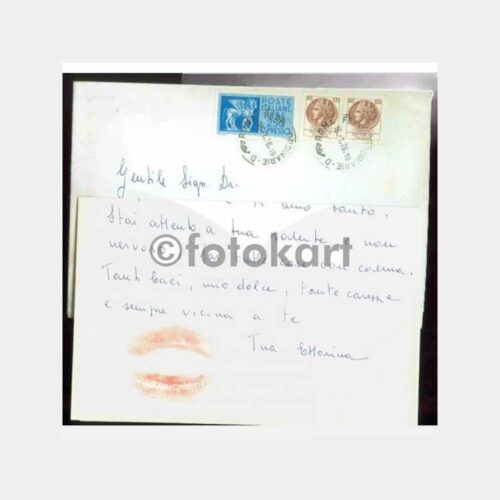 POSTE
ITALIANE
250
ESPRESSO
Gentile Sign. Dr.
amo tanto.
Stai attento a tua salute non
con calma.
Tanti baci, mio dolce, tante carezze
e sempre vicina a te
Tua Ettorina
©fotokart